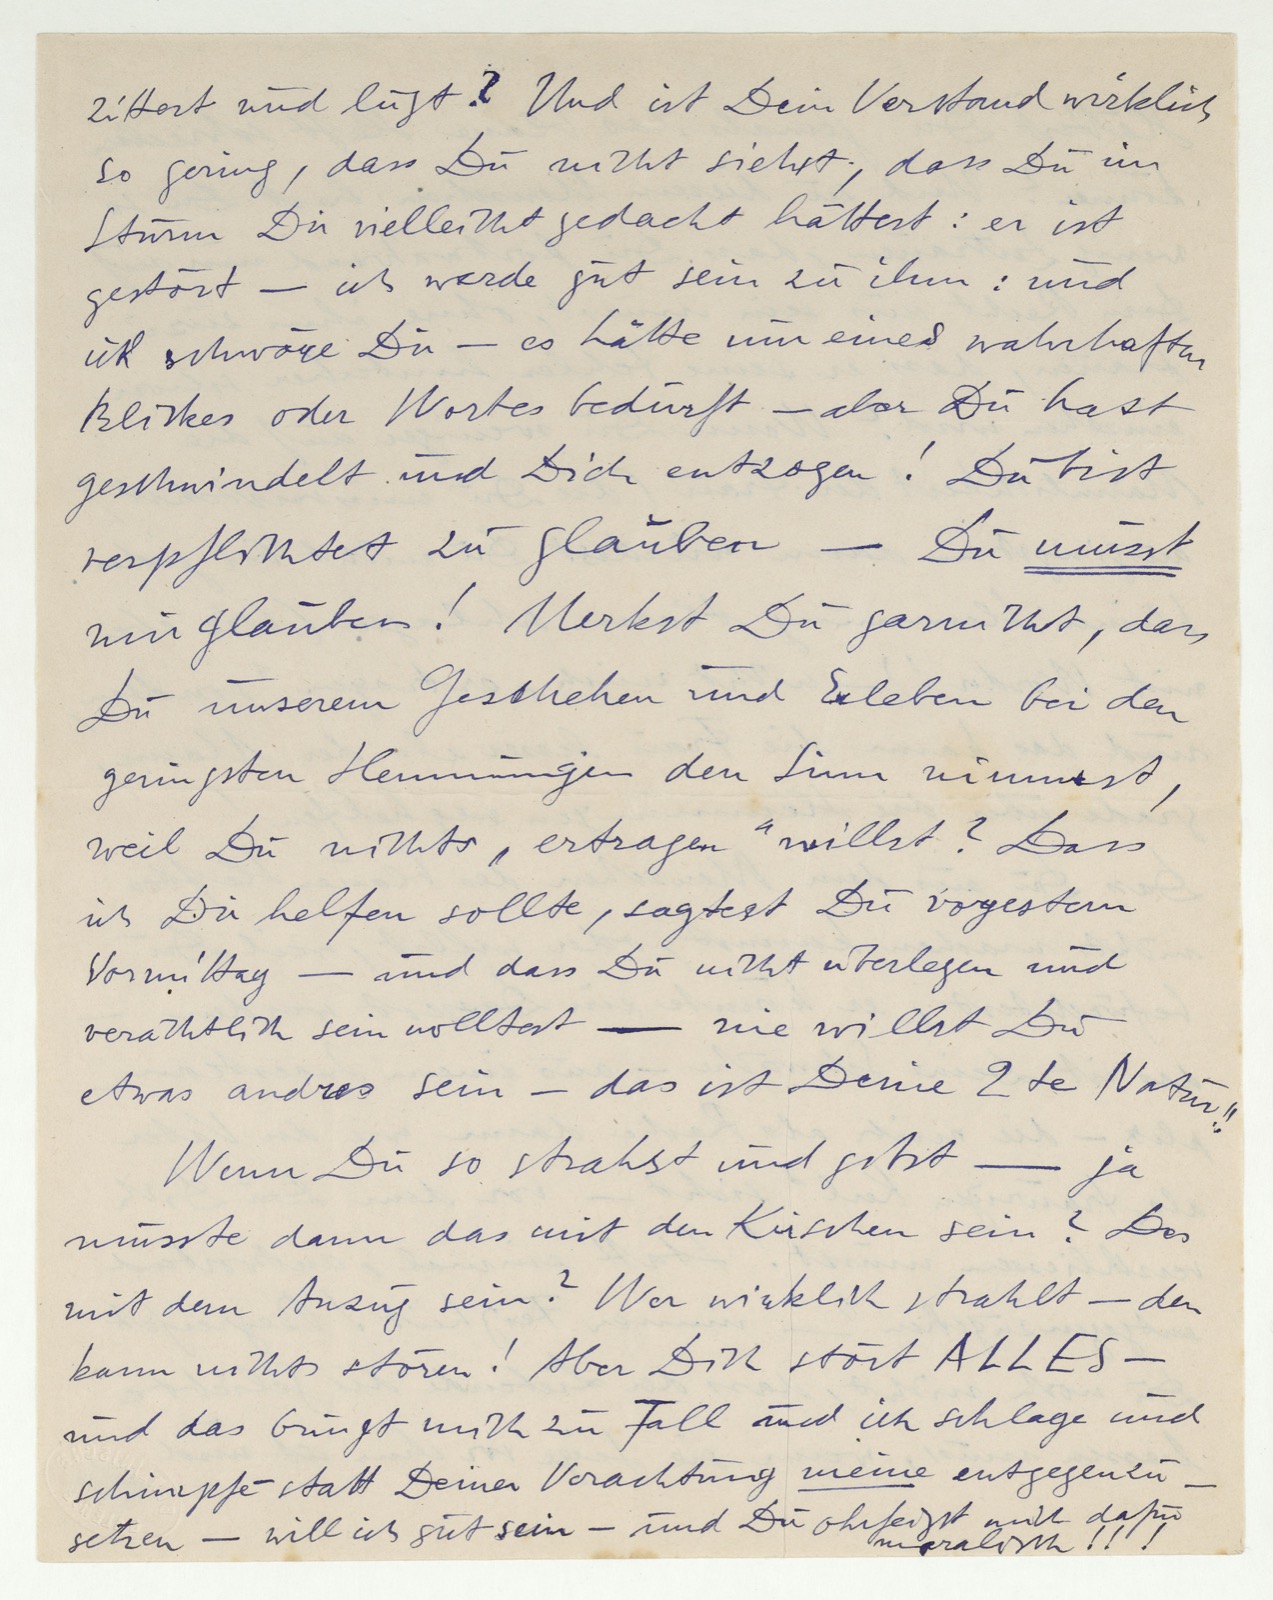 zittert und lügt? Und ist Dein Verstand wirklich
so gering, dass Du nicht siehst, dass Du im
Sturm Dir vielleicht gedacht hättest: er ist
gestört — ich werde gut sein zu ihm: und
ich schwöre Dir — es hätte nur eines wahrhaften
Blickes oder Wortes bedurft — aber Du hast
geschwindelt und Dich entzogen! Du bist
verpflichtet zu glauben — Du musst
mir glauben! Merkst Du garnicht, dass
Du unserem Geschehen und Erleben bei den
geringsten Hemmungen den Sinn nimmst,
weil Du nichts „ertragen“ willst? Dass
ich Dir helfen sollte, sagtest Du vorgestern
Vormittag — und dass Du nicht überlegen und
verächtlich sein wolltest — nie willst Du
etwas andres sein — das ist Deine 2te Natur!!
Wenn Du so strahlst und gibst — ja
müsste dann das mit den Kirschen sein? Das
mit dem Anzug sein? Wer wirklich strahlt — den
kann nichts stören! Aber Dich stört ALLES —
und das bringt mich zu Fall und ich schlage und
schimpfe statt Deiner Verachtung meine entgegenzu-
setzen — will ich gut sein — und Du ohrfeigst mich dafür
moralisch!!!